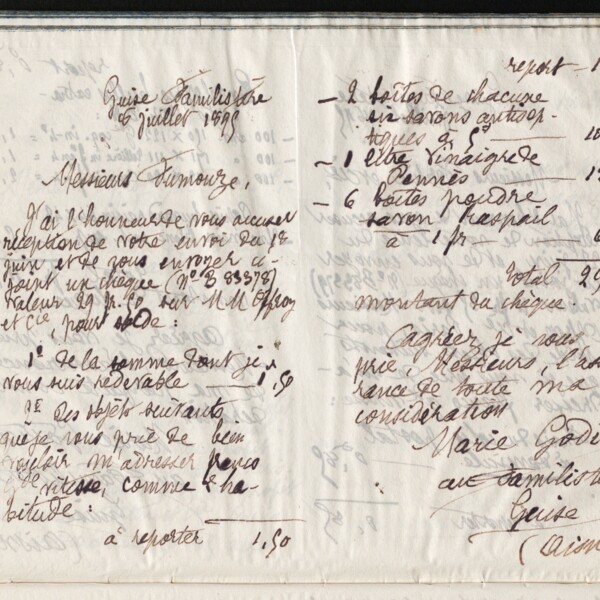 Guise Familistère
6 juillet 1895
Messieurs Fumouze,
J'ai l'honneur de vous accuser
réception de votre envoi du 18
juin et de vous envoyer ci-
joint un chèque (N° B 83378)
valeur 29 fr. 50 sur MM
et Cie, pour solde :
1° de la somme dont je
vous suis redevable 1,50
2° des objets suivants
que je vous prie de bien
vouloir m'adresser franco
vitesse, comme d'ha-
bitude :
à reporter 1,50
report 1
- 2 boîtes de chacune
six savons antisep-
tiques à 10
- 1 litre vinaigre de
Pennès 1
- 6 boîtes poudre
savon Raspail
à 1 fr 6
Total 29
montant du chèque.
Cagréez, je vous
prie, Messieurs, l'assu
rance de toute ma
considération
Marie Godi
au Familistè
Guise
(Aisn